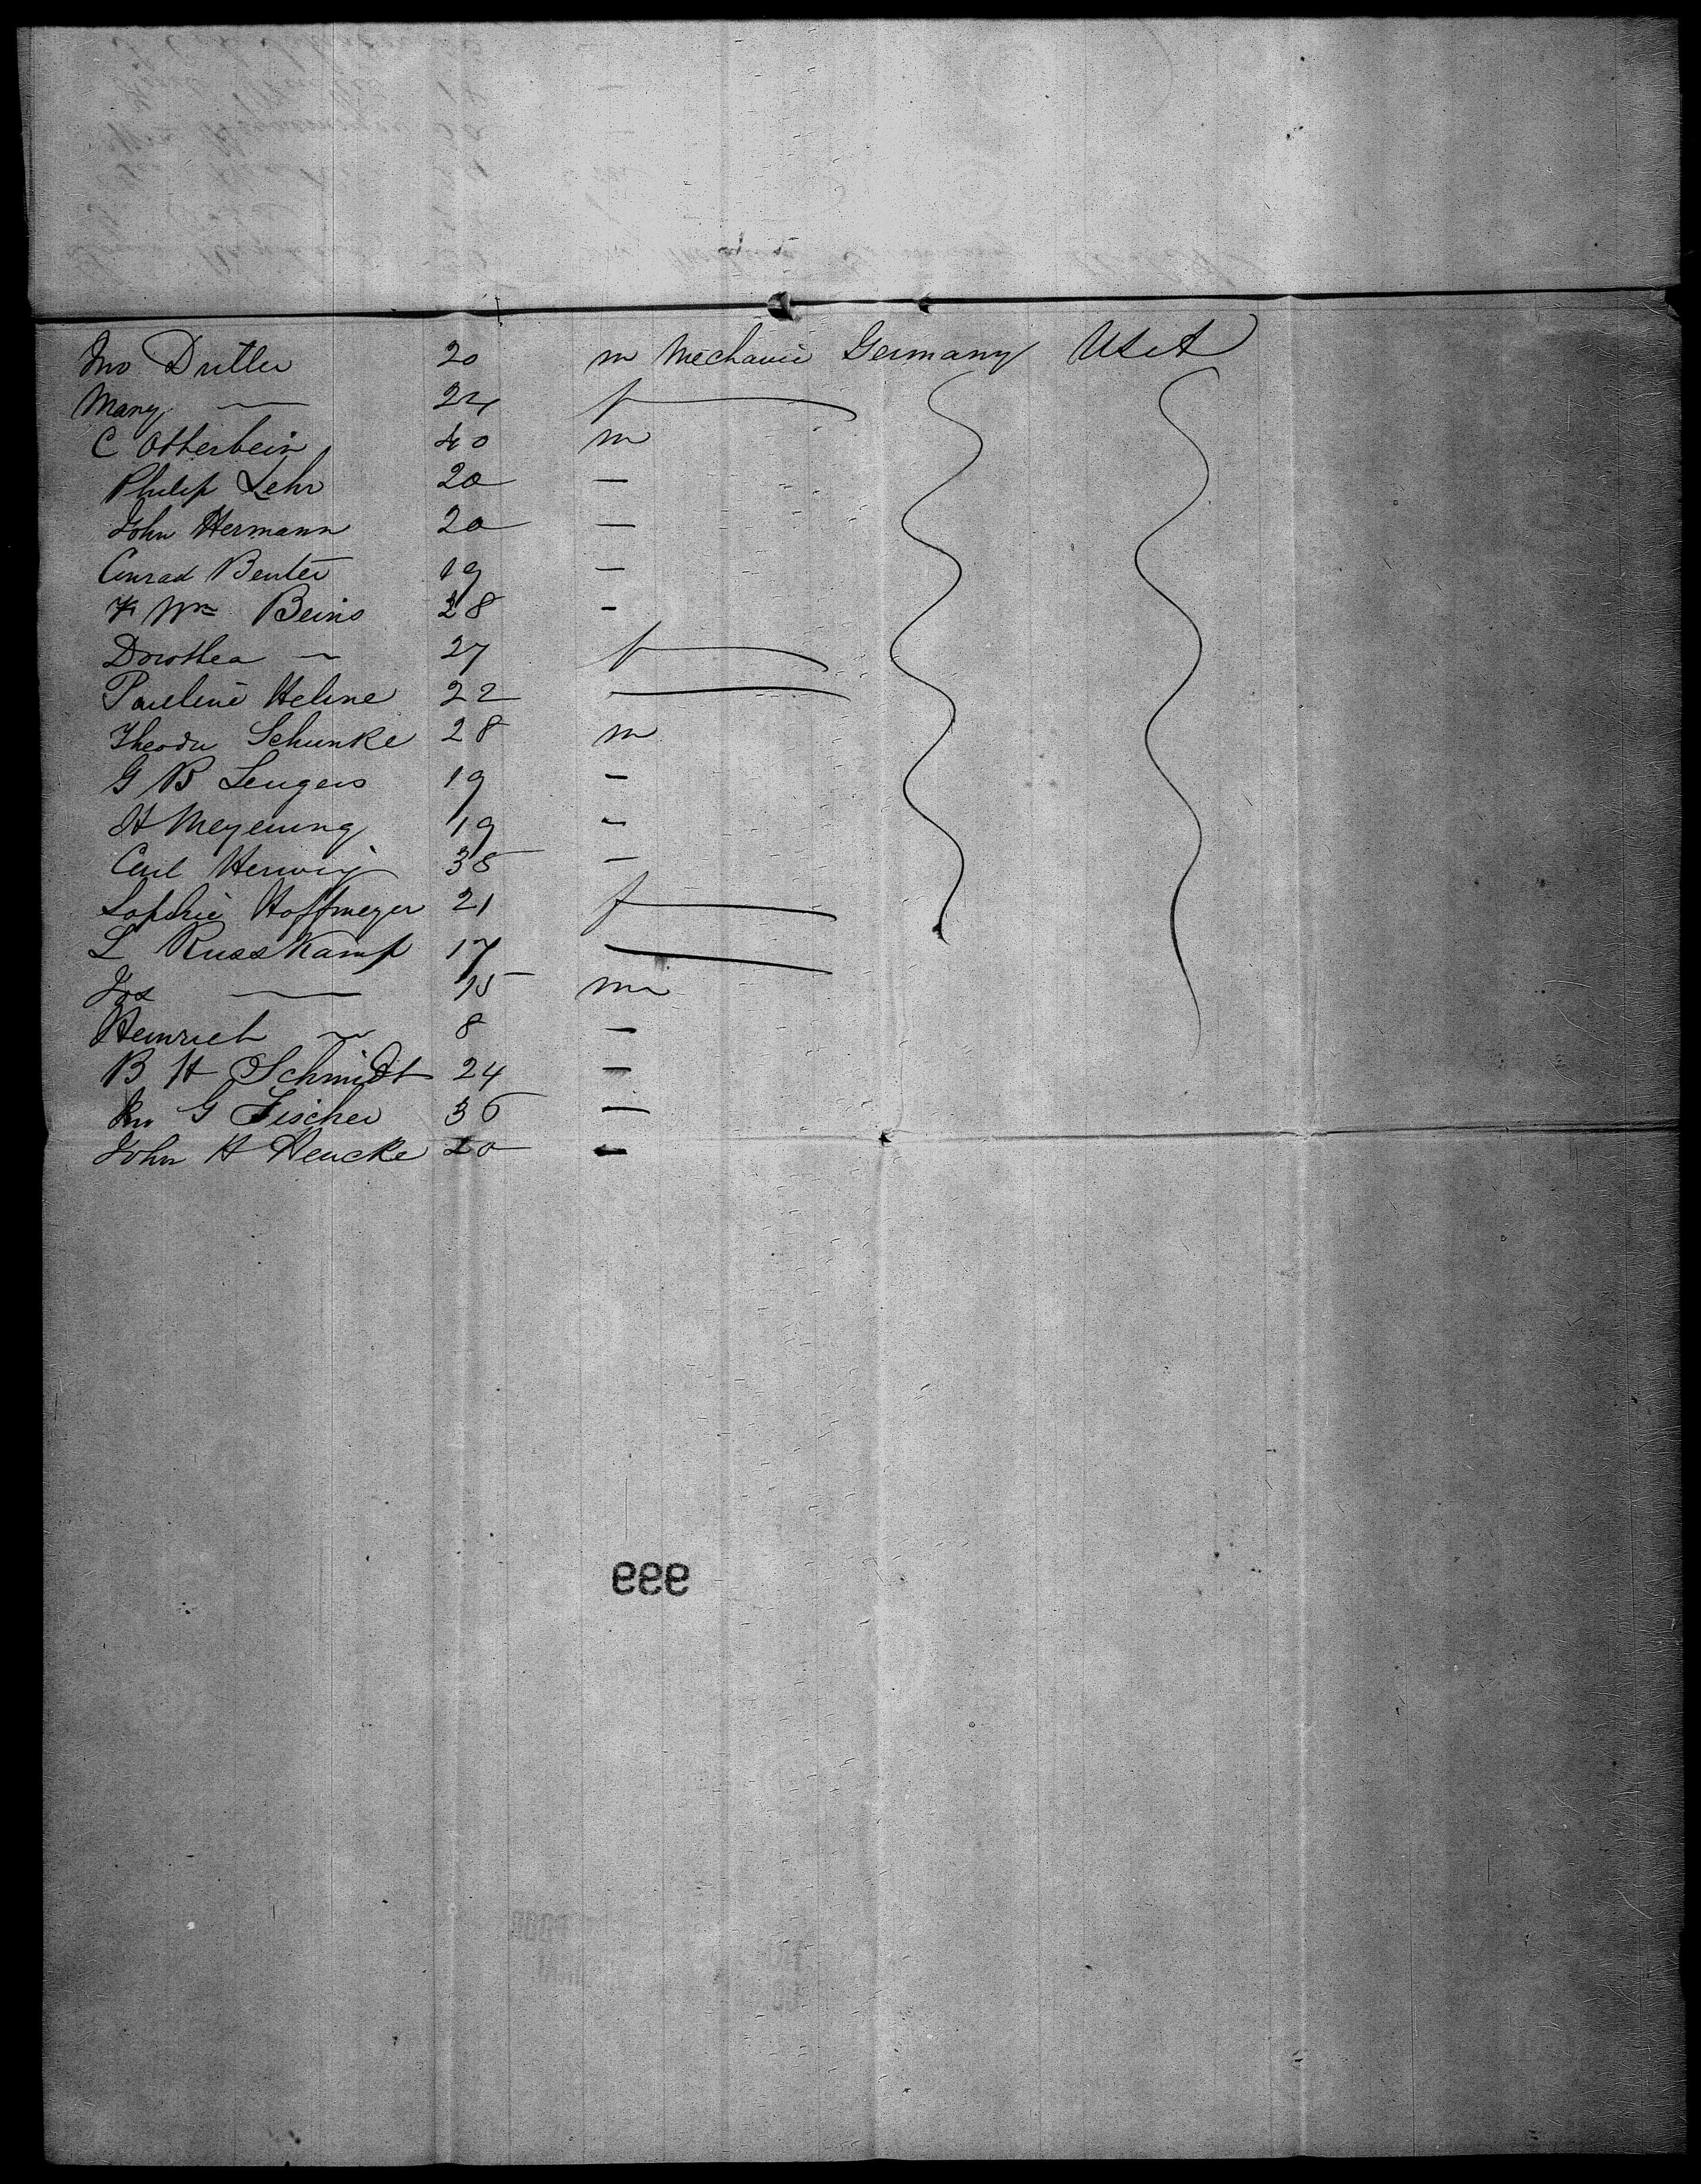 Jno Dutler 20 m Mechanic Germany USA
Mary — 24 f —
C Otterbein 40 m
Philip Lehr 20 —
John Hermann 20 —
Conrad Benter 19 —
F Wm Beins 28 -
Dorothea ~ 27 f —
Pauline Helme 22 —
Theodr Schunke 28 m
G B Lengers 19 -
H Meyening 19 -
Carl Herwig 38 —
Sophie Hoffmeyer 21 f —
L Russkamp 17 —
Jos — 15 m
Heinrich ~ 8 —
B H Schmidt 24 —
Jno G Fischer 36 —
John H Hencke 20 —
999